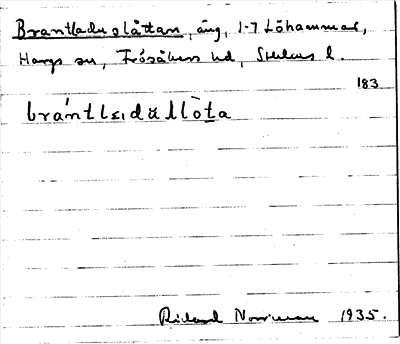 Brantladuslåttan, äng, 1-7 Löhammar,
Hargs sn, Frösåkers hd, Sthlms l.
183
brántleıdӑllòta
Rikard Norrman 1935.